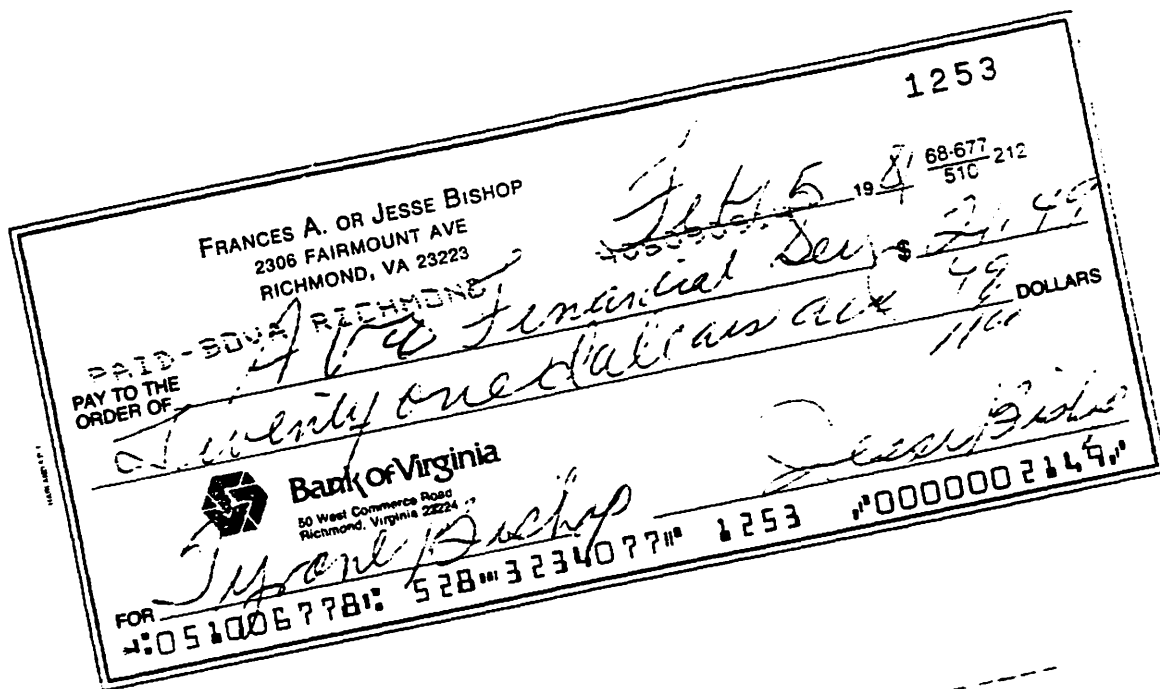 1253
FRANCES A. OR JESSE BISHOP
2306 FAIRMOUNT AVE
RICHMOND, VA 23223
Feb 5 19
68-677
510 212
PAID-BOVA RICHMOND
PAY TO THE
ORDER OF Financial Ser $ 21.49
Twenty one dollars and 49 DOLLARS
Bank of Virginia
50 West Commerce Road
Richmond, Virginia 23224
Jesse Bishop
FOR Tyrone Bishop
051006778 528 3234077 1253 0000002149